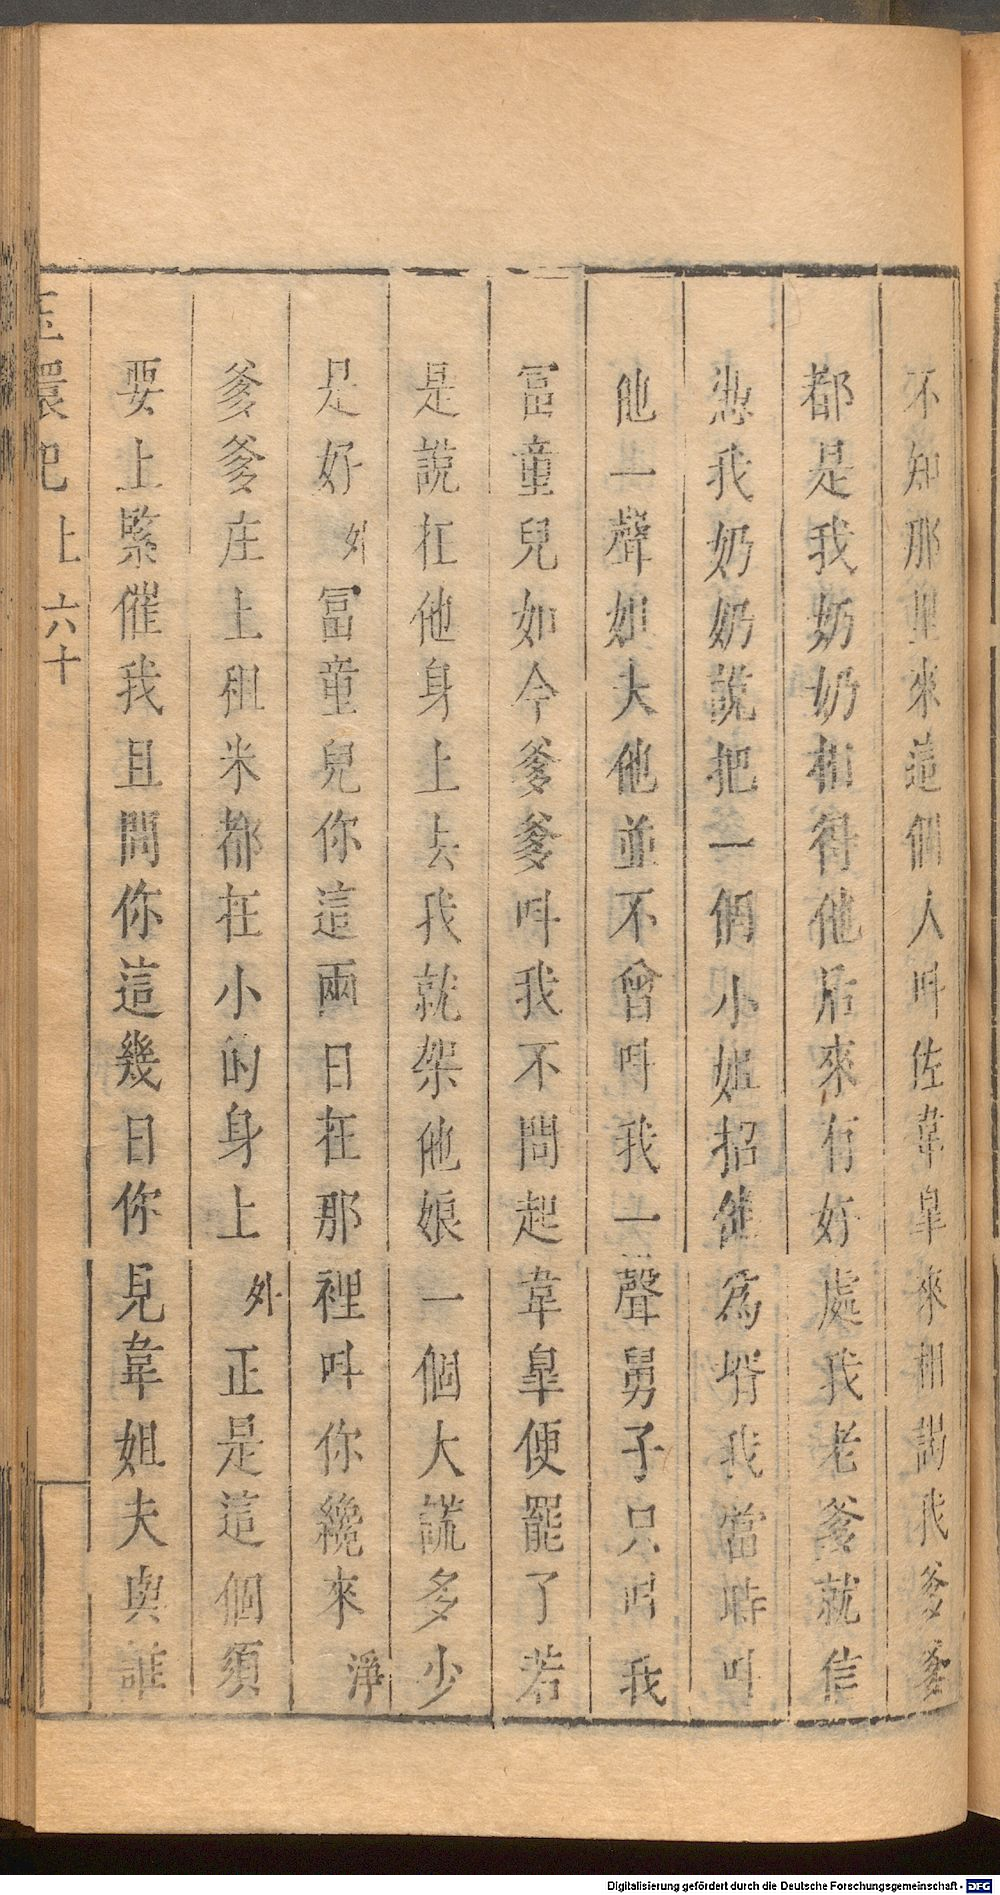 不知那里來這個人叫佐韋臯來相謁我爹爹
都是我奶奶相得他后來有好處我老爹就信
憑我奶奶說把一個小姐招他為壻我當時叫
他一聲如夫他並不曾叫我一聲舅子只叫我
冨童兒如今爹爹叫我不問起韋臯便罷了若
是說在他身上去我就架他娘一個大謊多少
是好 外 冨童兒你這兩日在那裡叫你纔來 淨
爹爹庄上租米都在小的身上 外 正是這個須
要上緊催我且問你這幾日你見韋姐夫與誰
玉環記 上 六十
Digitalisierung gefördert durch die Deutsche Forschungsgemeinschaft - DFG